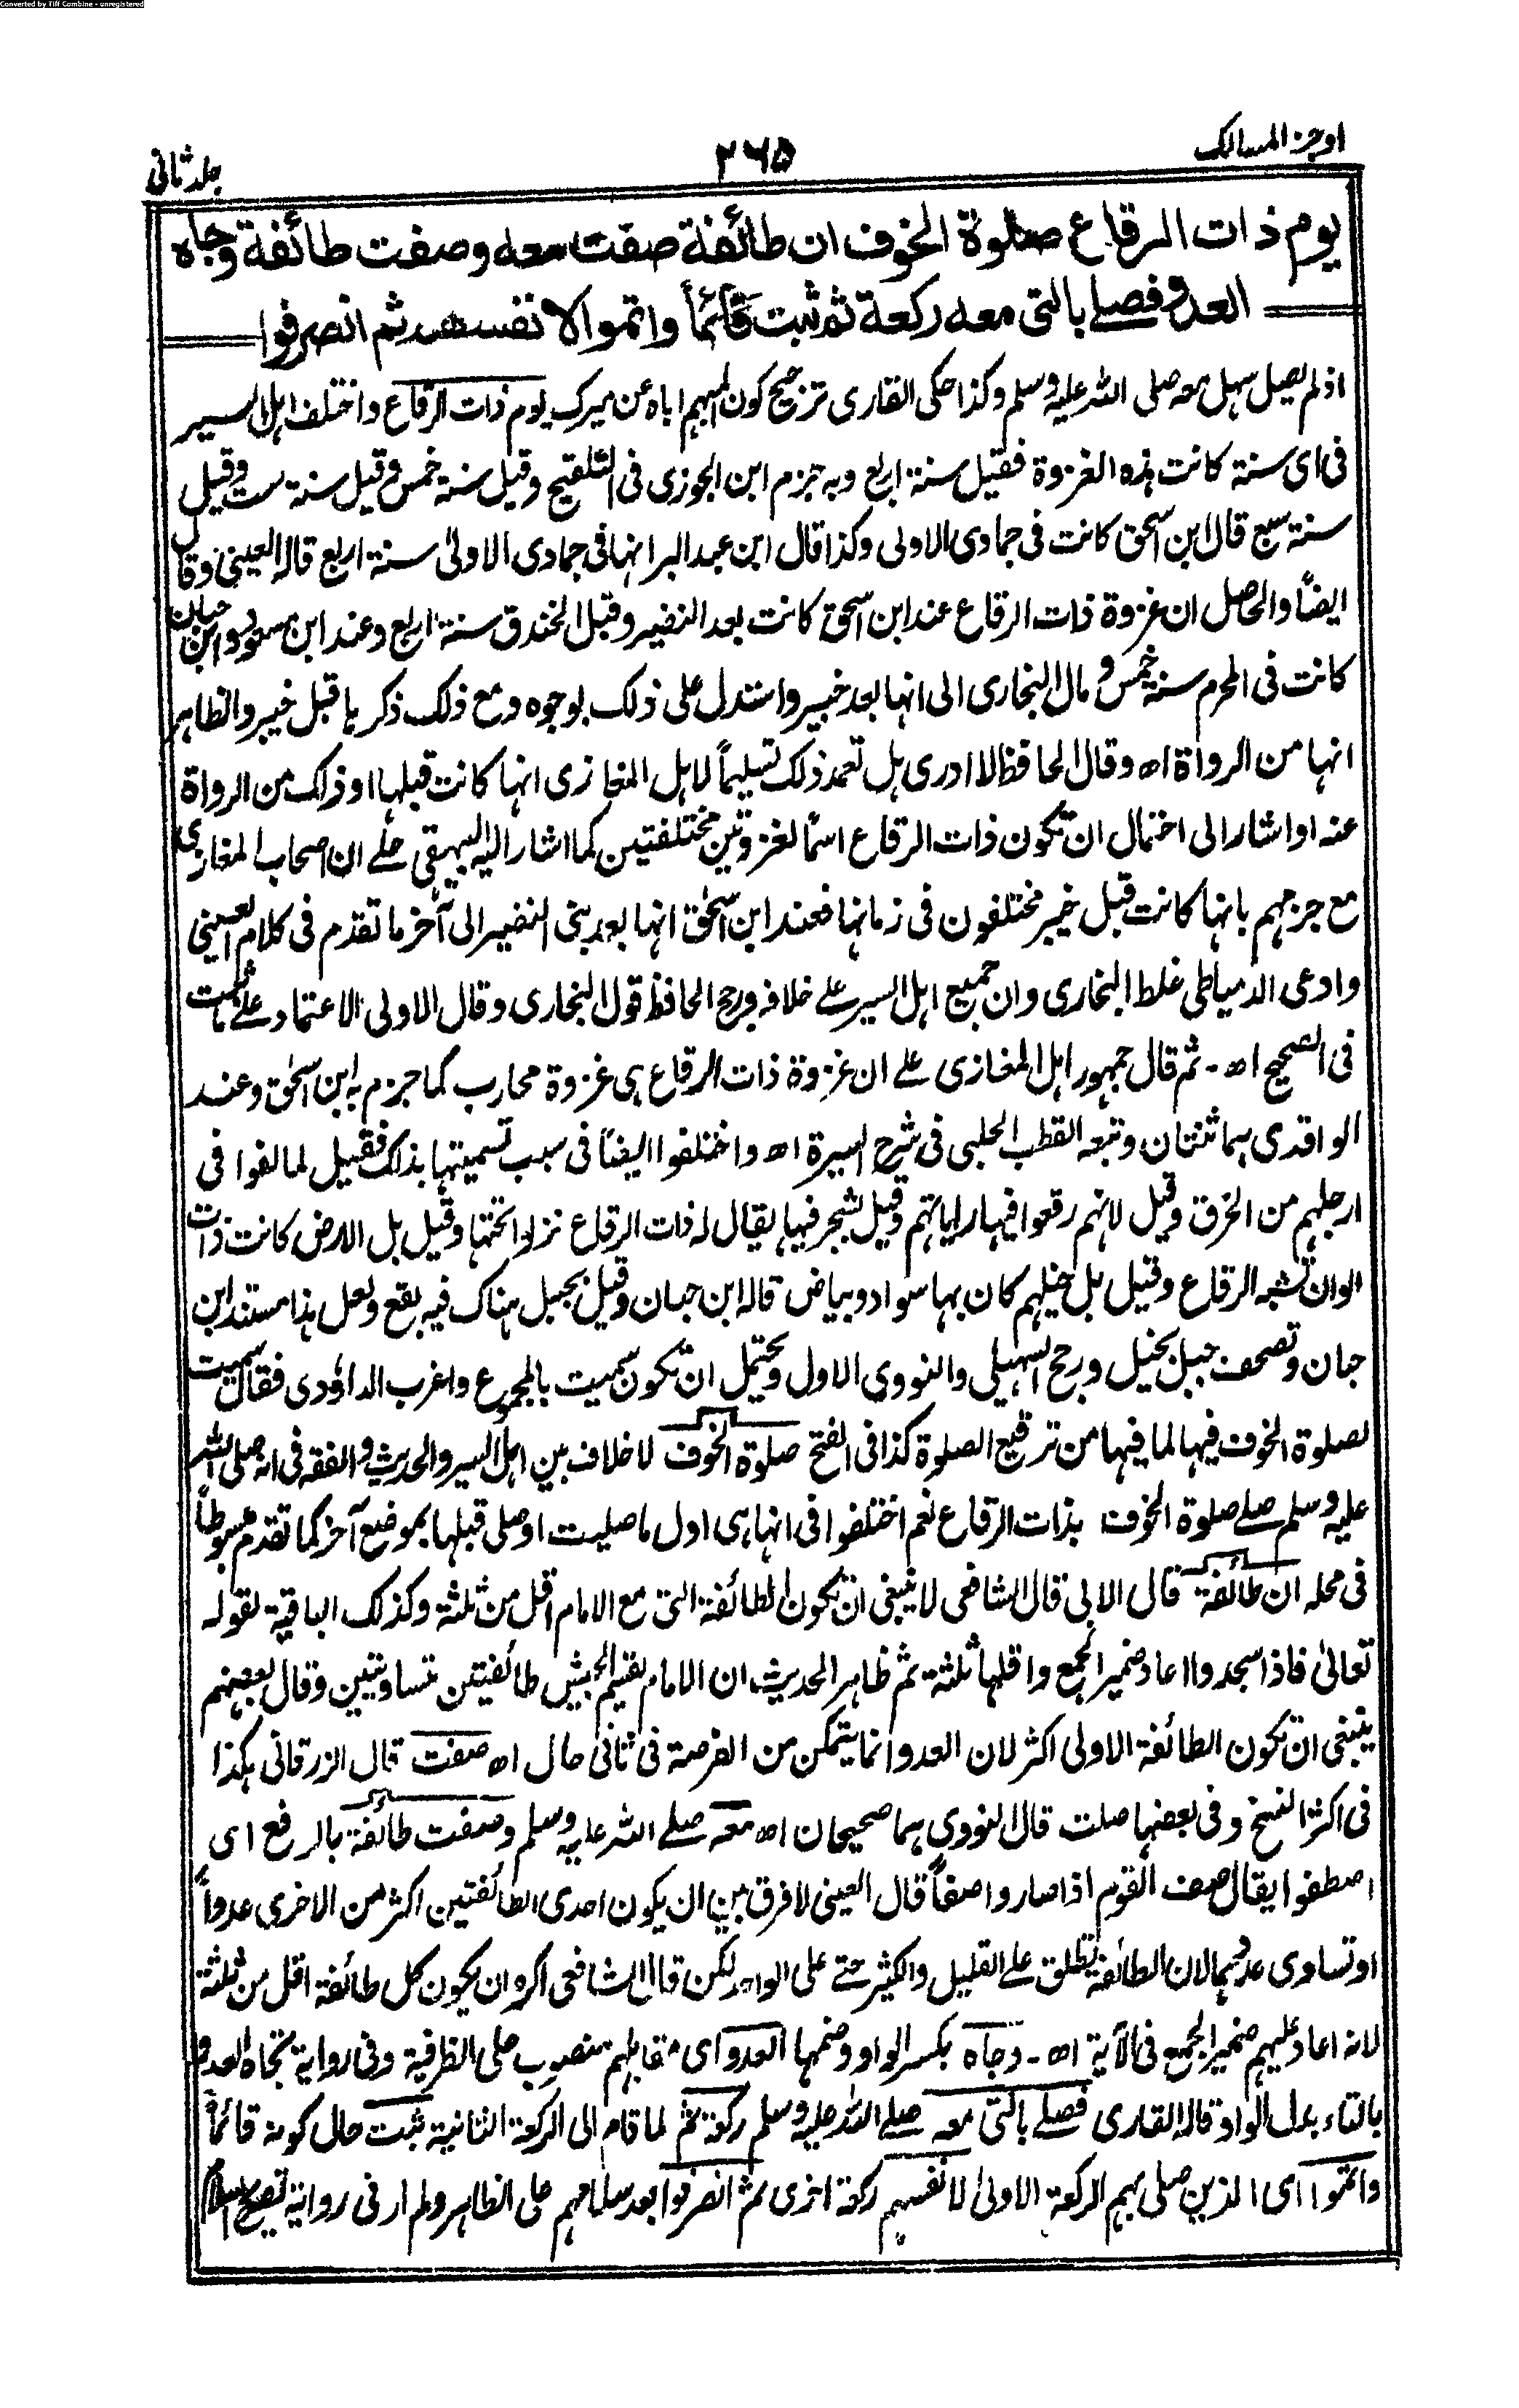 Converted by Tiff Combine - unregistered
اوجز المسالك
۲۶۵
جلد ثانی
يوم ذات الرقاع صلوة الخوف ان طائفة صفت معه وصفت طائفة وجاه
العدو فصلے بالتی معه ركعة ثم ثبت قائماً واتموا لانفسهم ثم انصرفوا
اذ لم يصل سهل معه صلى الله عليه وسلم وكذا حكى القارى ترجيح كون المبهم اباه عن ميرك يوم ذات الرقاع واختلف اهل السير
فى اى سنة كانت هذه الغزوة فقيل سنة اربع وبه جزم ابن الجوزى فى التلقيح وقيل سنة خمس وقيل سنة ست وقيل
سنة سبع قال ابن اسحٰق كانت فى جمادى الاولى وكذا قال ابن عبد البر انها فى جمادى الاولىٰ سنة اربع قاله العينى وقال
ايضاً والحاصل ان غزوة ذات الرقاع عند ابن اسحٰق كانت بعد النضير وقبل الخندق سنة اربع وعند ابن سعد وابن حبان
كانت فى المحرم سنة خمس ومال البخارى الى انها بعد خيبر واستدل على ذلك بوجوه ومع ذلك ذكرها قبل خيبر والظاهر
انها من الرواة اھ وقال الحافظ لا ادرى هل تعمد ذلك تسليماً لاهل المغازى انها كانت قبلها او ذلك من الرواة
عنه او اشار الى احتمال ان تكون ذات الرقاع اسماً لغزوتين مختلفتين كما اشار اليه البيهقى علے ان اصحاب المغازى
مع جزمهم بانها كانت قبل خيبر مختلفون فى زمانها فعند ابن اسحٰق انها بعد بنى النضير الى آخر ما تقدم فى كلام العينى
وادعى الدمياطى غلط البخارى وان جميع اهل السير علے خلافه ورجح الحافظ قول البخارى وقال الاولى الاعتماد علے ما ثبت
فى الصحيح اھ - ثم قال جمهور اهل المغازى علے ان غزوة ذات الرقاع هى غزوة محارب كما جزم به ابن اسحٰق وعند
الواقدى هما ثنتان وتبعه القطب الحلبى فى شرح السيرة اھ واختلفوا ايضاً فى سبب تسميتها بذلك فقيل لما لفوا فى
ارجلهم من الخرق وقيل لانهم رقعوا فيها راياتهم وقيل لشجر فيها يقال له ذات الرقاع نزلوا تحتها وقيل بل الارض كانت ذات
الوان تشبه الرقاع وقيل بل خيلهم كان بها سواد وبياض قاله ابن حبان وقيل بجبل هناك فيه بقع ولعل هذا مستند ابن
حبان وتصحف جبل بخيل ورجح السهيلى والنووى الاول ويحتمل ان تكون سميت بالمجموع واغرب الداؤدى فقال سميت
لصلوة الخوف فيها لما فيها من ترقيع الصلوة كذا فى الفتح صلوة الخوف لا خلاف بين اهل السير والحديث والفقه فى انه صلى الله
عليه وسلم صلے صلوة الخوف بذات الرقاع نعم اختلفوا فى انها هى اول ما صليت او صلى قبلها بموضع آخر كما تقدم مبسوطاً
فى محله ان طائفة قال الابى قال الشافعى لا ينبغى ان تكون الطائفة التى مع الامام اقل من ثلثة وكذلك الباقية لقوله
تعالىٰ فاذا سجدوا اعاد ضمير الجمع واقلها ثلثة ثم ظاهر الحديث ان الامام يقسم الجيش طائفتين متساويتين وقال بعضهم
ينبغى ان تكون الطائفة الاولى اكثر لان العدو انما يتمكن من الفرصة فى ثانى حال اھ صفت قال الزرقانى هكذا
فى اكثر النسخ وفى بعضها صلت قال النووى هما صحيحان اھ معه صلے الله عليه وسلم وصفت طائفة بالرفع اى
اصطفوا يقال صف القوم اذا صاروا صفاً قال العينى لا فرق بين ان يكون احدى الطائفتين اكثر من الاخرى عدداً
او تساوى عددهما لان الطائفة تطلق علے القليل والكثير حتے على الواحد لكن قال الشافعى اكره ان يكون كل طائفة اقل من ثلثة
لانه اعاد عليهم ضمير الجمع فى الآية اھ - وجاه بكسر الواو وضمها العدو اى مقابلهم منصوب على الظرفية وفى رواية تجاه العدو
بالتاء بدل الواو قاله القارى فصلے بالتى معه صلے الله عليه وسلم ركعة ثم لما قام الى الركعة الثانية ثبت حال كونه قائماً
واتموا اى الذين صلى بهم الركعة الاولىٰ لانفسهم ركعة اخرى ثم انصرفوا بعد سلامهم على الظاهر ولم ار فى رواية تصريح السلام